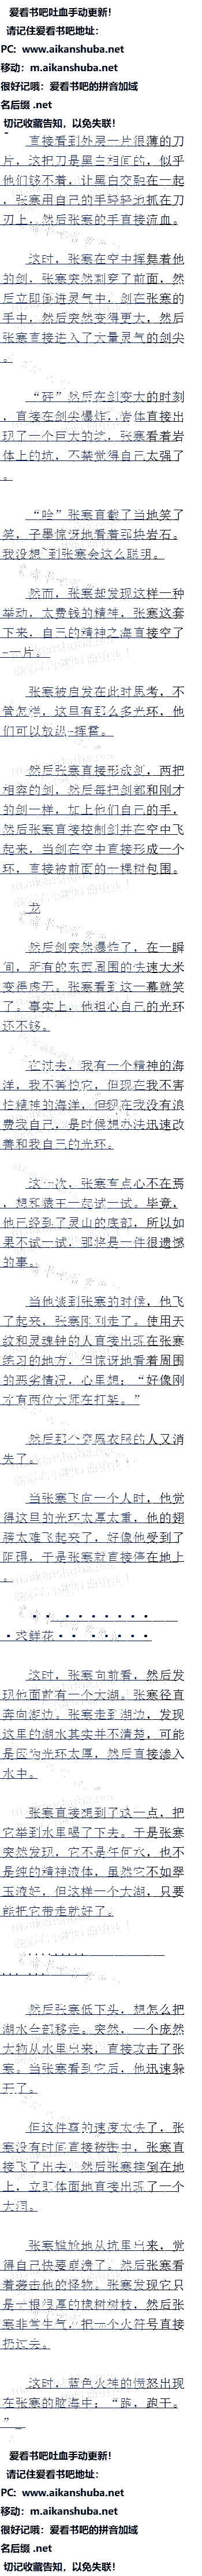 爱看书吧吐血手动更新！
请记住爱看书吧地址：
PC: www.aikanshuba.net
移动: m.aikanshuba.net
很好记哦: 爱看书吧的拼音加域
名后缀 .net
切记收藏告知，以免失联！
直接看到外层一片很薄的刀
片，这把刀是黑白相间的，似乎
他们够不着，让黑白交融在一起
，张寒用自己的手轻轻地抓在刀
刃上，然后张寒的手直接流血。
这时，张寒在空中挥舞着他
的剑，张寒突然刺穿了前面，然
后立即倒进灵气中，剑在张寒的
手中，然后突然变得更大，然后
张寒直接进入了大量灵气的剑尖
。
“砰”然后在剑变大的时刻
，直接在剑尖爆炸，岩体直接出
现了一个巨大的坑，张寒看着岩
体上的坑，不禁觉得自己太强了
。
“哈”张寒直截了当地笑了
笑，子墨惊讶地看着那块岩石。
我没想~到张寒会这么聪明。
然而，张寒却发现这样一种
举动，太费钱的精神，张寒这套
下来，自己的精神之海直接空了
~一片。
张寒被启发在此时思考，不
管怎样，这里有那么多光环，他
们可以放纵~挥霍。
然后张寒直接形成剑，两把
相容的剑，然后每把剑都和刚才
的剑一样，加上他们自己的手，
然后张寒直接控制剑并在空中飞
起来，当剑在空中直接形成一个
环，直接被前面的一棵树包围。
龙
然后剑突然爆炸了，在一瞬
间，所有的东西周围的快速大米
变得虚无。张寒看到这一幕就笑
了。事实上，他担心自己的光环
还不够。
在过去，我有一个精神的海
洋，我不害怕它，但现在我不害
怕精神的海洋，但现在我没有浪
费我自己，是时候想办法迅速改
善和我自己的光环。
这一次，张寒有点心不在焉
，想和猿王一起试一试。毕竟，
他已经到了灵山的底部，所以如
果不试一试，那将是一件很遗憾
的事。
当他谈到张寒的时候，他飞
了起来，张寒刚刚走了。使用天
纹和灵魂钟的人直接出现在张寒
练习的地方，但惊讶地看着周围
的恶劣情况，心里想：“好像刚
才有两位大师在打架。”
然后那个穿原衣服的人又消
失了。
当张寒飞向一个人时，他觉
得这里的光环太厚太重，他的翅
膀太难飞起来了，好像他受到了
阻碍，于是张寒就直接停在地上
。
·求鲜花··
这时，张寒向前看，然后发
现他面前有一个大湖。张寒径直
奔向湖边。张寒走到湖边，发现
这里的湖水其实并不清楚，可能
是因为光环太厚，然后直接渗入
水中。
张寒直接想到了这一点，把
它举到水里喝了下去。于是张寒
突然发现，它不是任何水，也不
是纯的精神液体，虽然它不如翠
玉液好，但这样一个大湖，只要
能把它带走就好了。
然后张寒低下头，想怎么把
湖水全部移走。突然，一个庞然
大物从水里出来，直接攻击了张
寒。当张寒看到它后，他迅速躲
开了。
但这件事的速度太快了，张
寒没有时间直接被击中，张寒直
接飞了出去，然后张寒摔倒在地
上，立即体面地直接出现了一个
大洞。
张寒尴尬地从坑里出来，觉
得自己快要崩溃了。然后张寒看
着袭击他的怪物。张寒发现它只
是一根很厚的橡树树枝，然后张
寒非常生气，把一个火符号直接
扔过去。
这时，蓝色火神的愤怒出现
在张寒的脑海中：“跑，跑干。
”
爱看书吧吐血手动更新！
请记住爱看书吧地址：
PC: www.aikanshuba.net
移动: m.aikanshuba.net
很好记哦: 爱看书吧的拼音加域
名后缀 .net
切记收藏告知，以免失联！